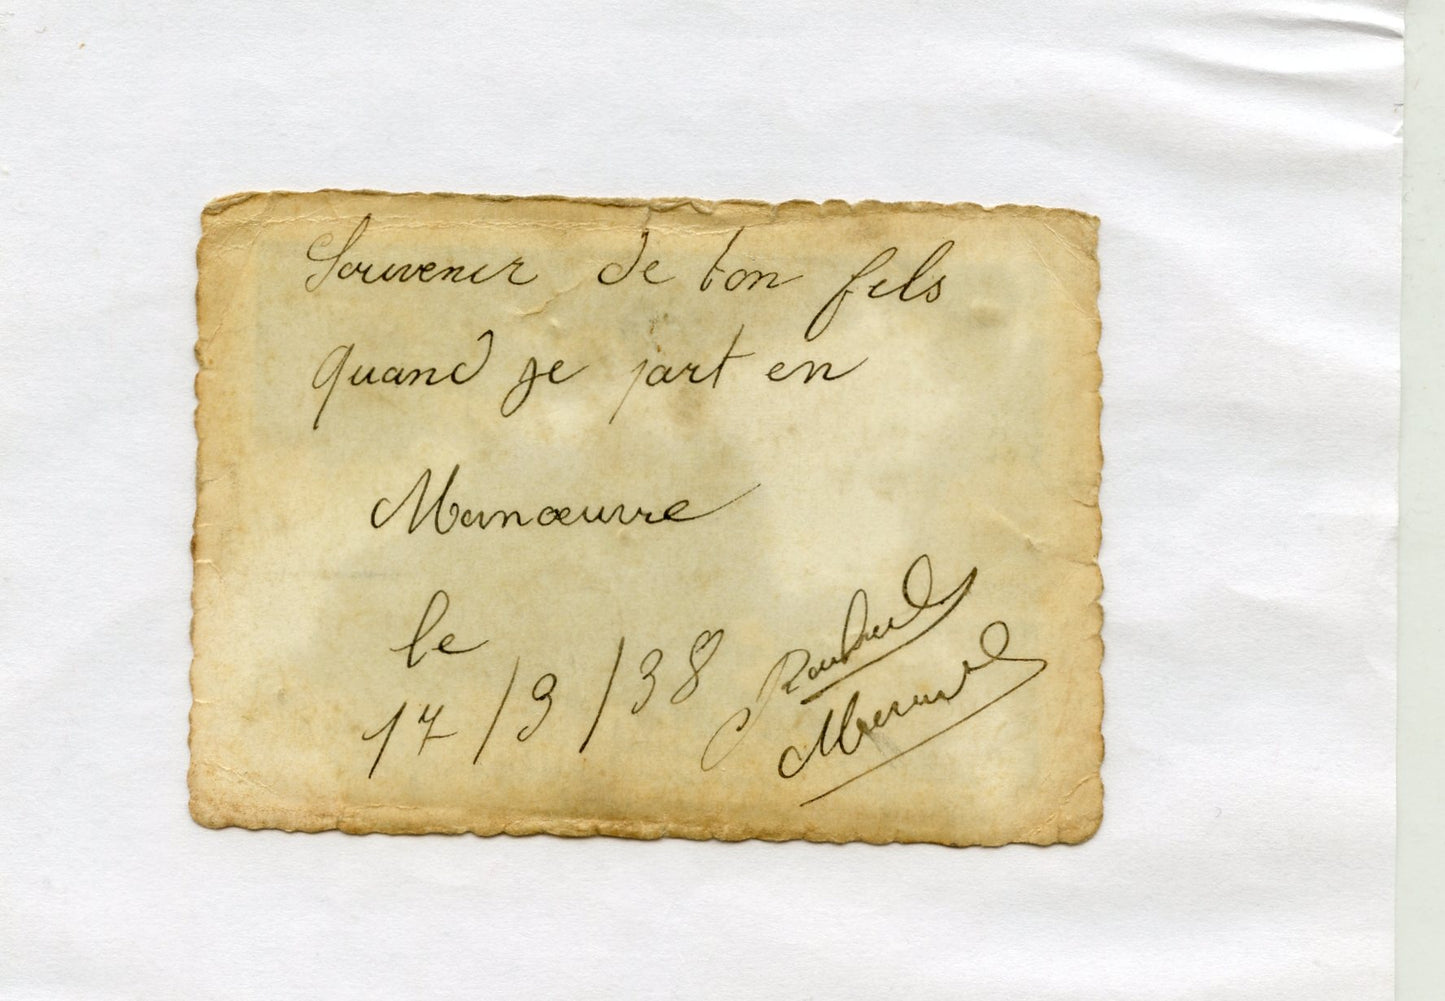 Souvenir de ton fils
quand je part en
Manœuvre
le
17/9/38